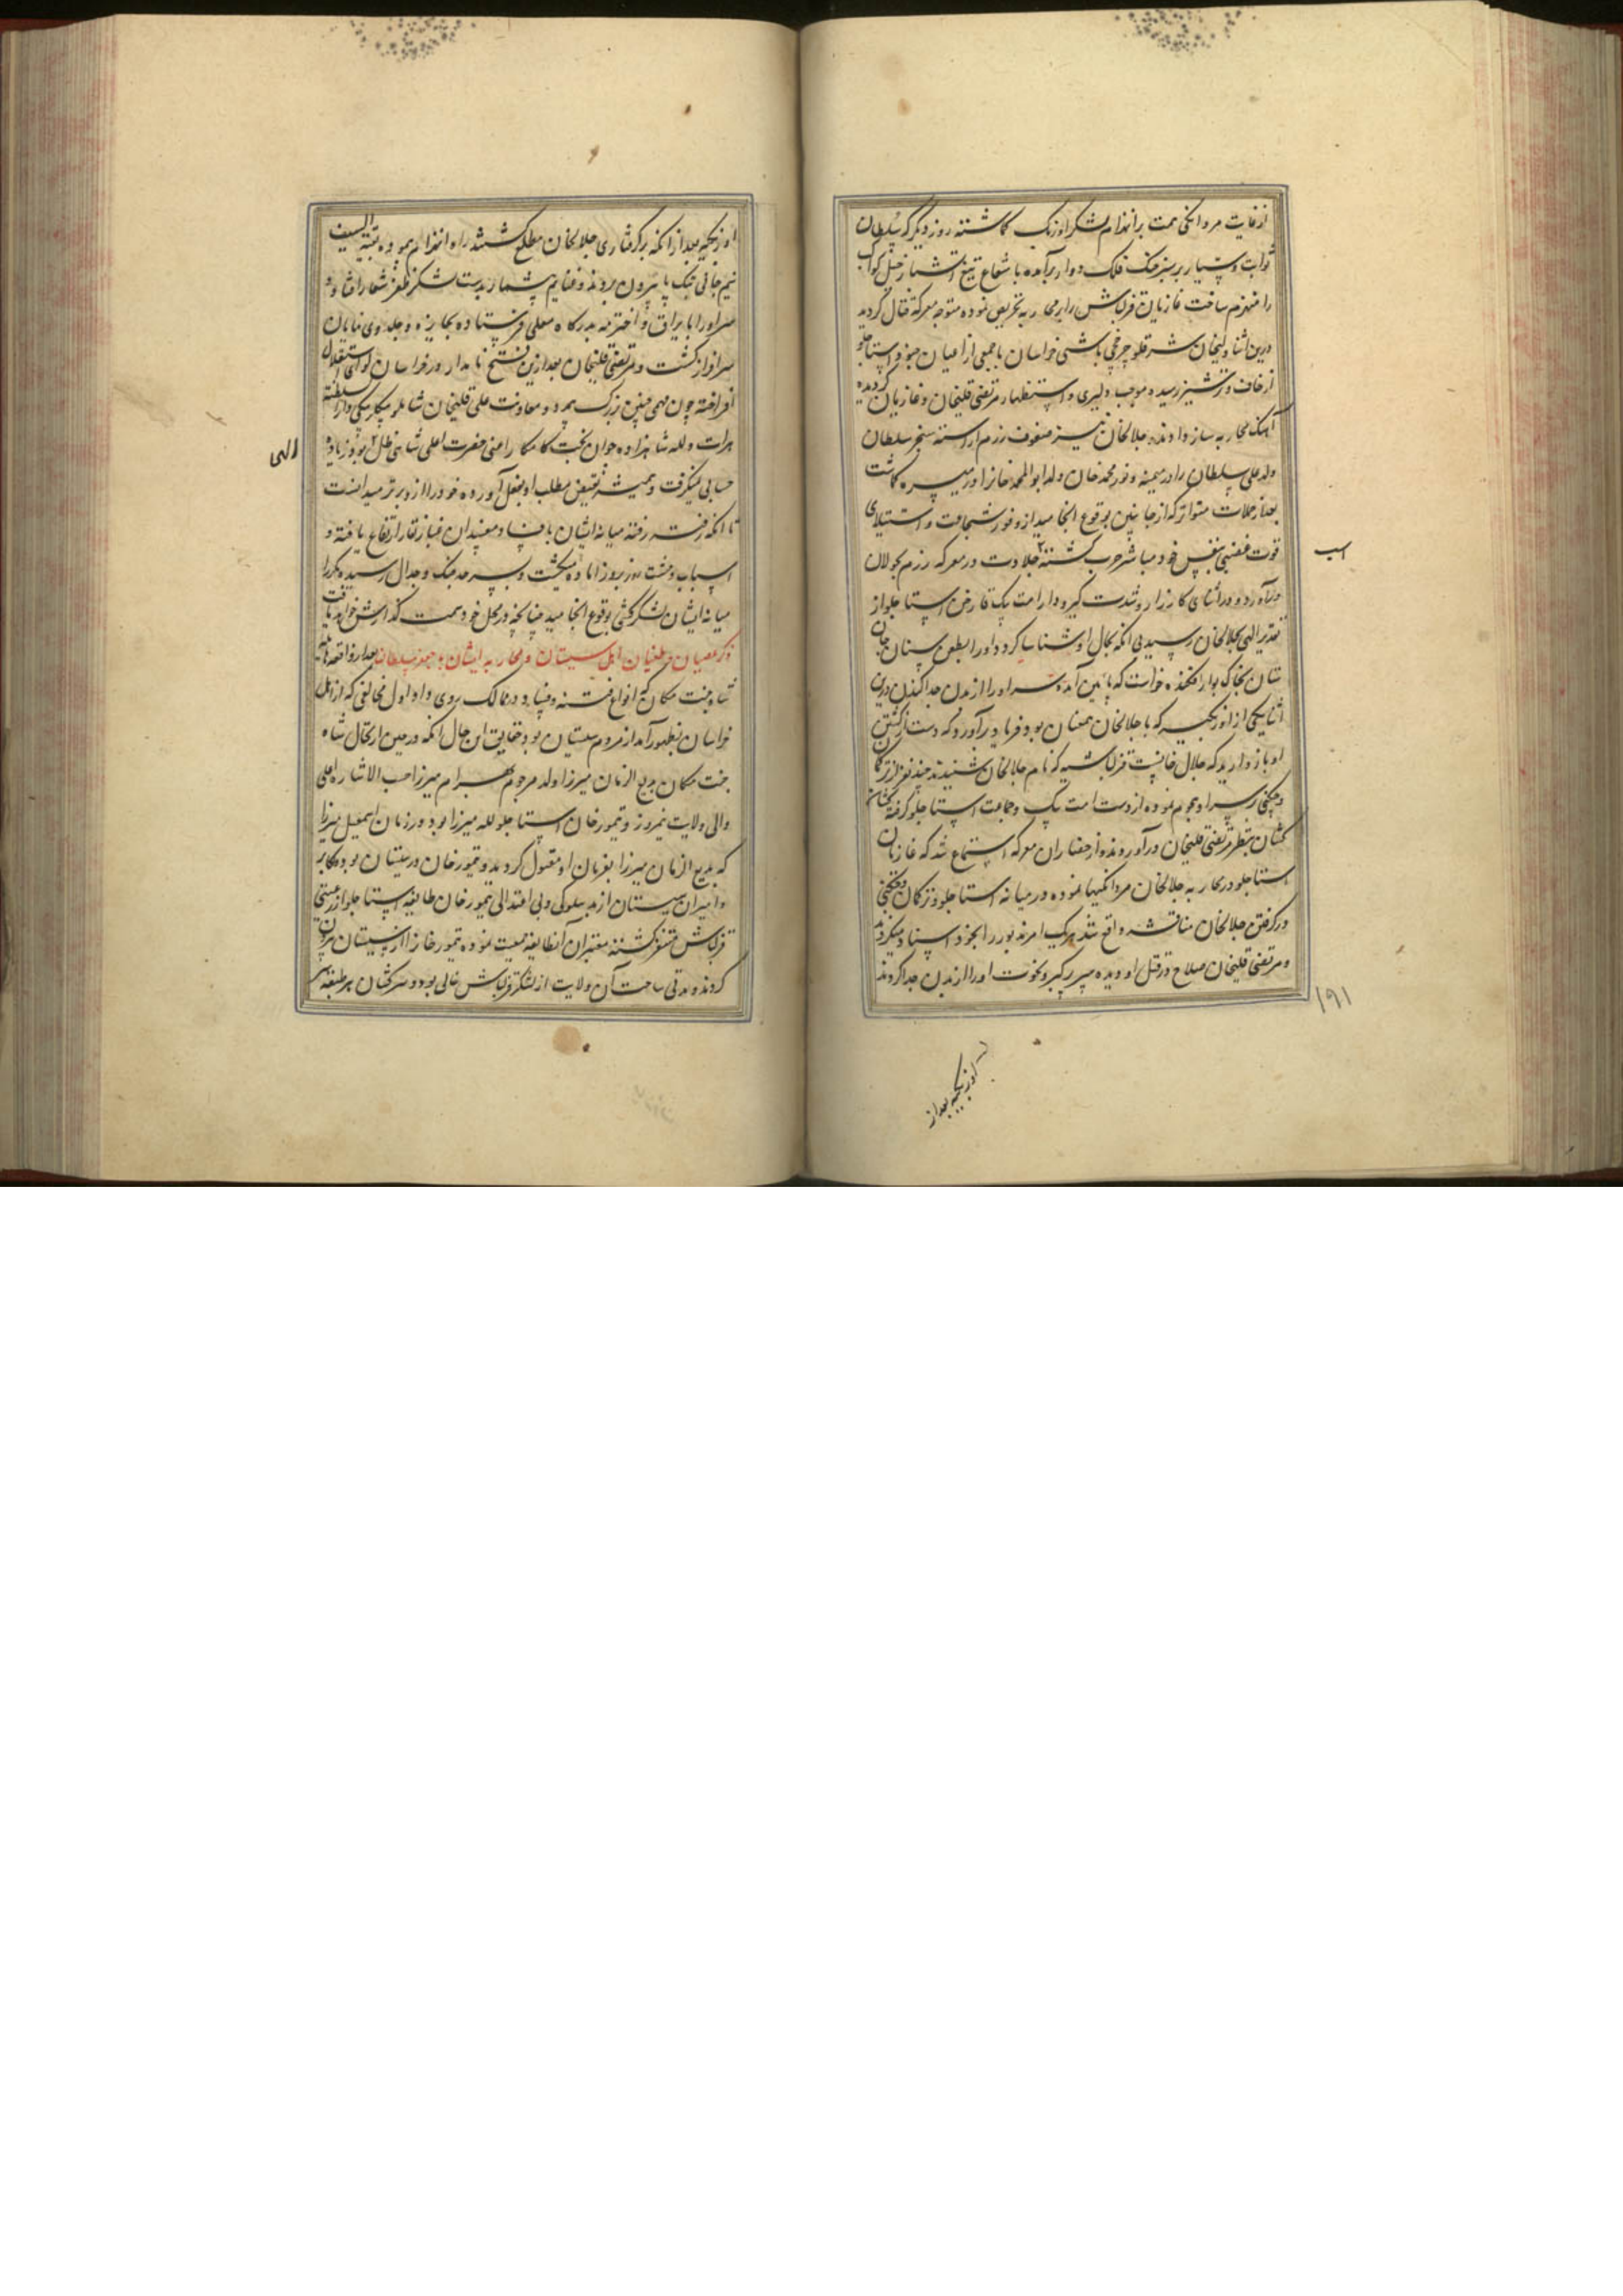 از غایت مردانگی همت بر انهزام لشکر اوزبک گماشته روز دیگر که سلطان
ثوابت و سیار بر سبز خنک فلک دوار برآمده با شعاع تیغ آتشبار خیل کواکب
را منهزم ساخت غازیان قزلباش را بر محاربه تحریص نموده متوجه معرکه قتال گردید
درین اثنا ولیخان شرقلو چرخچی باشی خراسان با جمعی از اعیان استاجلو
از خاف و ترشیز رسیده موجب دلیری و استظهار مرتضی قلیخان و غازیان گردیده
آهنگ محاربه ساز دادند و جلالخان نیز صفوف رزم آراسته سنجر سلطان
ولد علی سلطان را در میمنه و نور محمد خان ولد ابوالمحمد خانرا در میسره گماشت
بعد از حملات متواتر که از جانبین بوقوع انجامید از وفور شجاعت و استیلای
قوت غضبی بنفس خود مباشر حرب گشته جلادت در معرکه رزم بجولان
درآورد و در اثنای کارزار و شدت گیرودار امت بیک قارخن استاجلو از
تقدیر الهی بجلالخان رسید بی آنکه بحال او شناسا گردد او را بطعن سنان جان
ستان بخاک بوار افکنده خواست که پایین آمده سر او را از بدن جدا کند درین
اثنا یکی از اوزبکیه که با جلالخان همعنان بود فریاد برآورد که دست از کشتن
او باز دارید که جلال خانست قزلباشیه که نام جلالخان شنیدند چند نفر از ترکمان
و چگنی بر سر او هجوم نموده از دست امت بیک و جماعت استاجلو گرفته کشان
کشان بنظر مرتضی قلیخان درآوردند و از حضاران معرکه استماع شد که غازیان
استاجلو در محاربه جلالخان مردانگیها نموده در میانه استاجلو و ترکمان و چگنی
در گرفتن جلالخان مناقشه واقع شد هریک امر مذبور را بخود اسناد میکردند
و مرتضی قلیخان صلاح در قتل او دیده سر پر کبر و نخوت او را از بدن جدا کردند
اسب
۱۹۱
اوزبکیه بعد از
اوزبکیه بعد از آنکه بر گرفتاری جلالخان مطلع گشتند راه انهزام پیموده بقیة السیف
نیم جانی بتک پا بیرون بردند و غنایم بیشمار بدست لشکر ظفر شعار افتاد و
سر او را با یراق و اخترمه بدرگاه معلی فرستاده بجایزه و جلدوی نمایان
سرافراز گشت و مرتضی قلیخان بعد ازین فتح نامدار در خراسان لوای استقلال
افراخته چون مهمی چنین بزرگ بیمدد و معاونت علی قلیخان شاملو بیکلربیکی دارالسلطنة
هرات و لله شاهزاده جوان بخت کامکار اعنی حضرت اعلی شاهی ظل بود زیاده
حسابی نمیگرفت و همیشه نقیض مطلب او بفعل آورده خود را از او برتر میدانست
تا آنکه رفته رفته میانه ایشان بافساد مفسدان غبار نقار ارتفاع یافته و
اسباب وحشت روز بروز آماده میگشت و بسرحد جنگ و جدال رسیده مکررا
میانه ایشان لشکر کشی بوقوع انجامید چنانچه در محل خود سمت گذارش خواهد یافت
ذکر عصیان و طغیان اهل سیستان و محاربه ایشان با جعفر سلطان بعد از واقعه هایله
شاه جنت مکان که انواع فتنه و فساد در ممالک روی داد اول مخالفتی که از اهل
خراسان بظهور آمد از مردم سیستان بود حقایق این حال آنکه در حین ارتحال شاه
جنت مکان بدیع الزمان میرزا ولد مرحوم بهرام میرزا حسب الاشاره اعلی
والی ولایت نیمروز و تیمور خان استاجلو لله میرزا بود و در زمان اسمعیل میرزا
که بدیع الزمان میرزا بفرمان او مقتول گردید و تیمور خان در سیستان بود اکابر
و امیران سیستان از بد سلوکی و بی اعتدالی تیمور خان طایفه استاجلو از
قزلباش متنفر گشته معتبران آنطایفه جمعیت نموده تیمور خانرا از سیستان بیرون
کردند و مدتی ساحت آن ولایت از لشکر قزلباش خالی بود و سرکشان هر طبقه سر
الهی